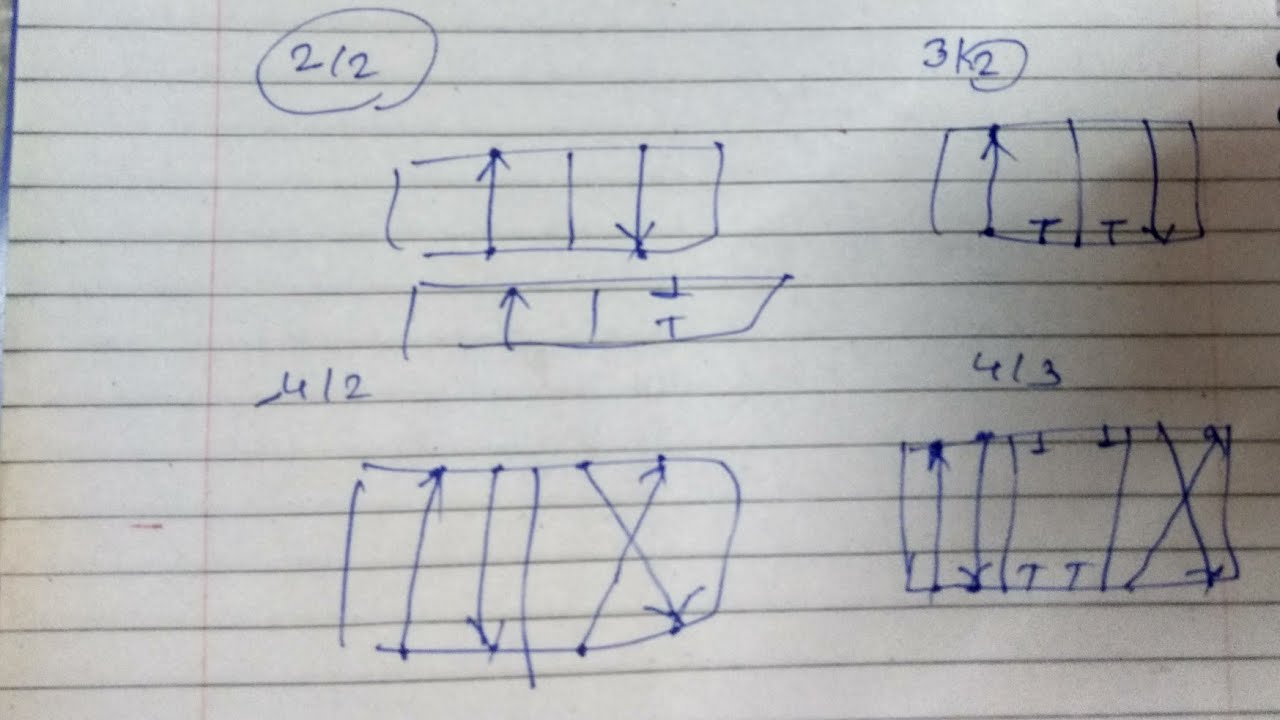 2/2
3/2
4/2
4/3